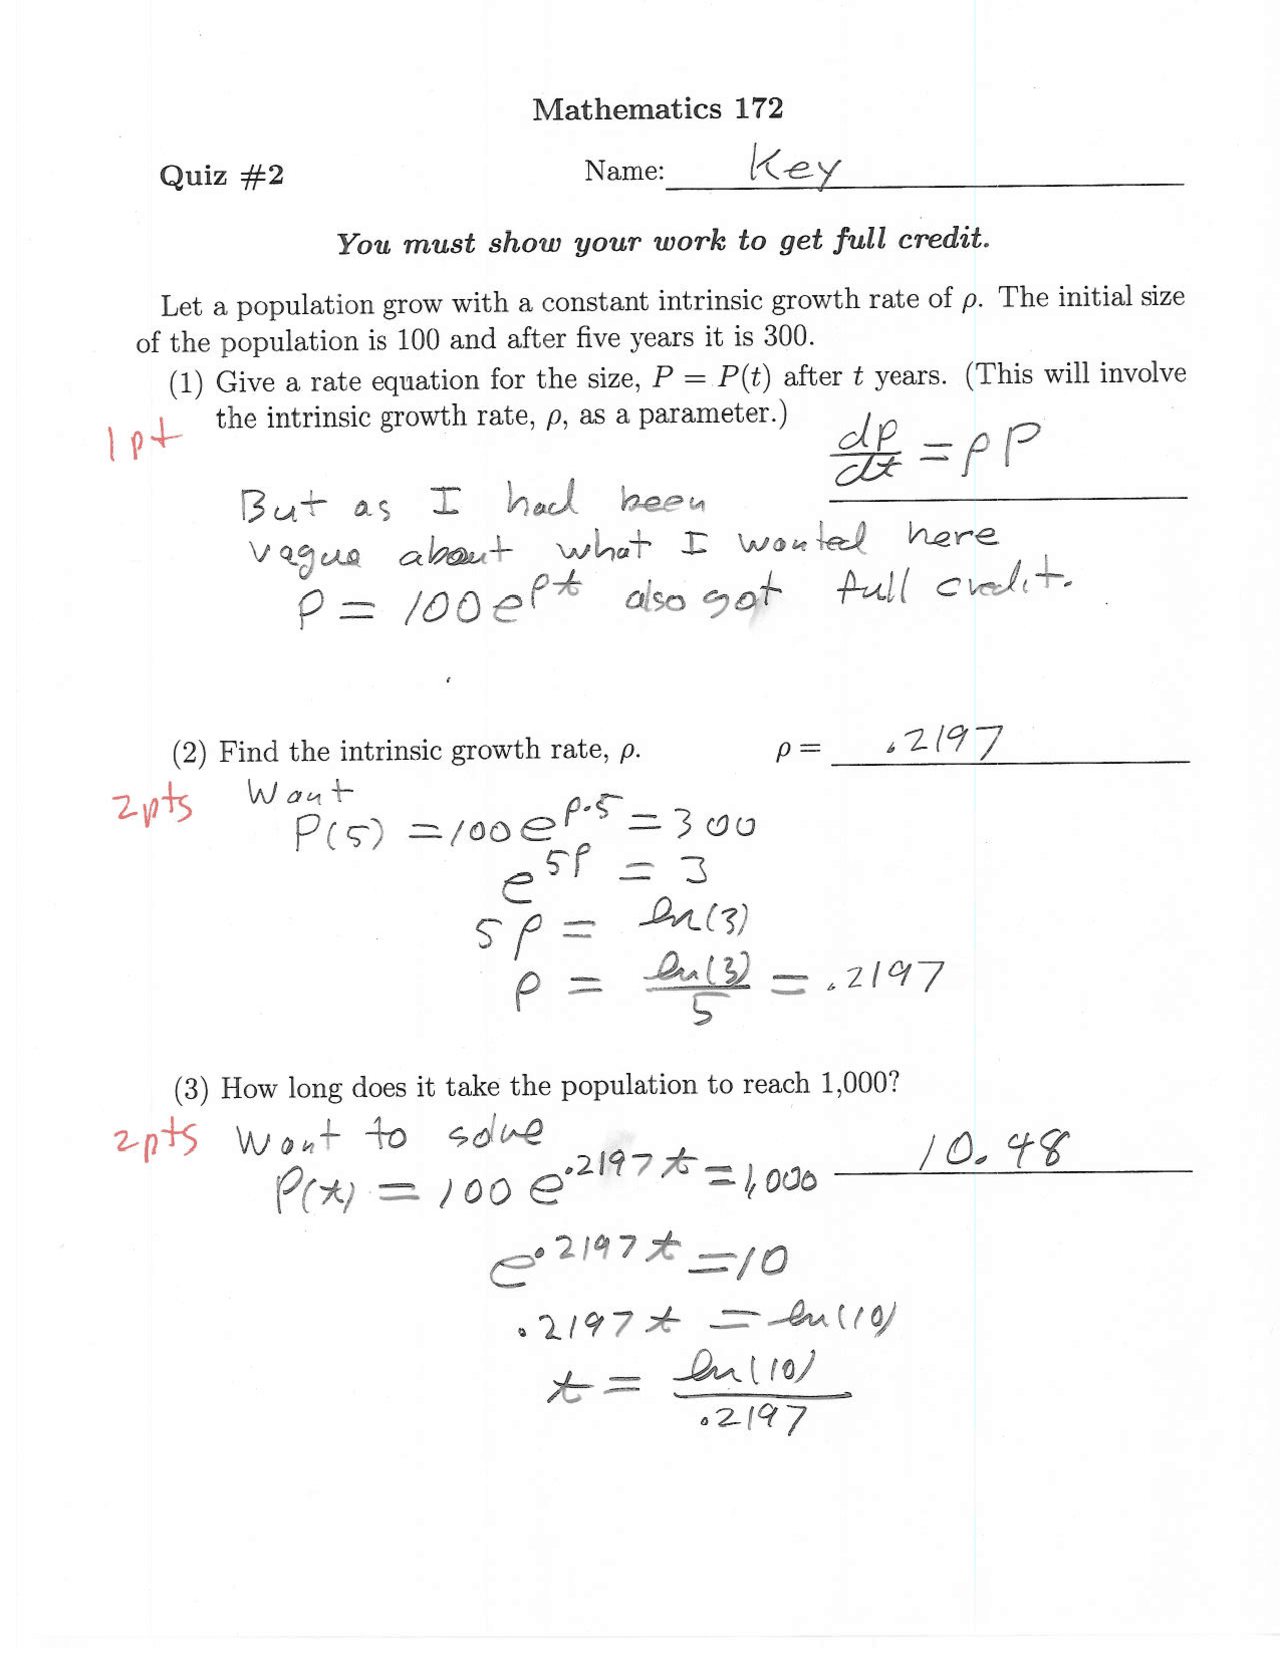 Mathematics 172
Quiz #2 Name: Key
You must show your work to get full credit.
Let a population grow with a constant intrinsic growth rate of ρ. The initial size
of the population is 100 and after five years it is 300.
(1) Give a rate equation for the size, P = P(t) after t years. (This will involve
the intrinsic growth rate, ρ, as a parameter.)
1pt
dP/dt = ρP
But as I had been
vague about what I wanted here
P = 100e^{ρt} also got full credit.
(2) Find the intrinsic growth rate, ρ. ρ = .2197
2pts Want
P(5) = 100e^{ρ·5} = 300
e^{5ρ} = 3
5ρ = ln(3)
ρ = ln(3)/5 = .2197
(3) How long does it take the population to reach 1,000?
2pts Want to solve
10.48
P(t) = 100 e^{.2197t} = 1,000
e^{.2197t} = 10
.2197t = ln(10)
t = ln(10)/.2197